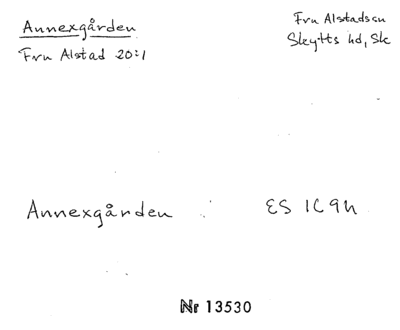 Annexgården
Fru Alstad 20:1
Fru Alstads sn
Skytts hd, Sk
Annexgården
ES 1C 9h
Nr 13530